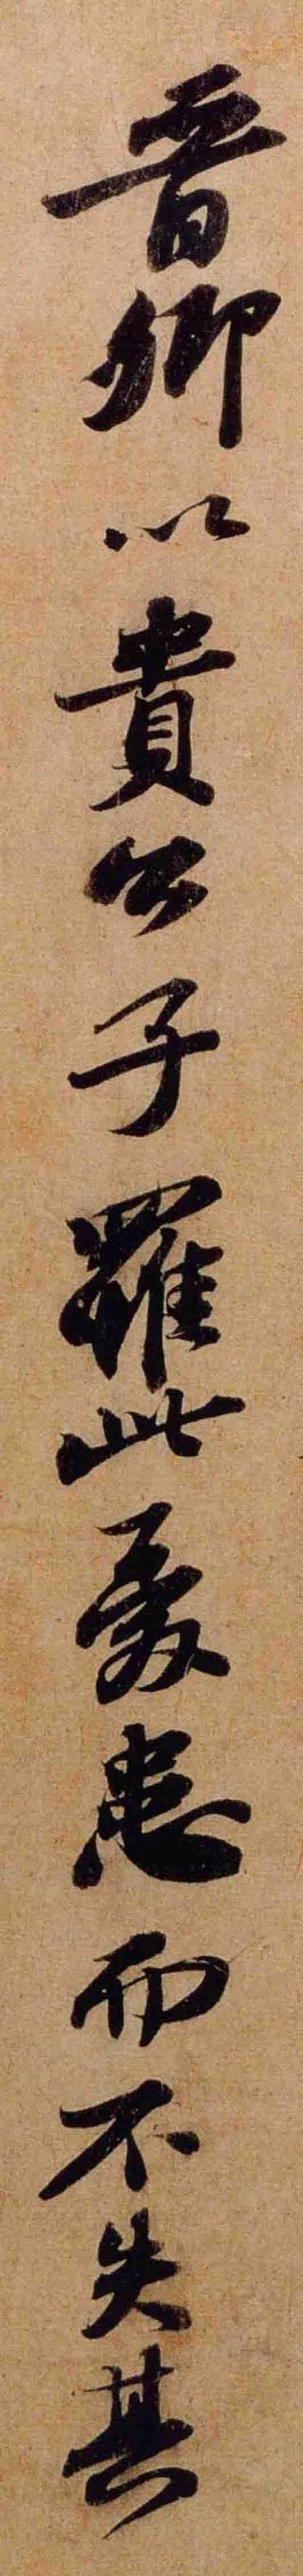 晉卿以貴公子罹此憂患而不失其